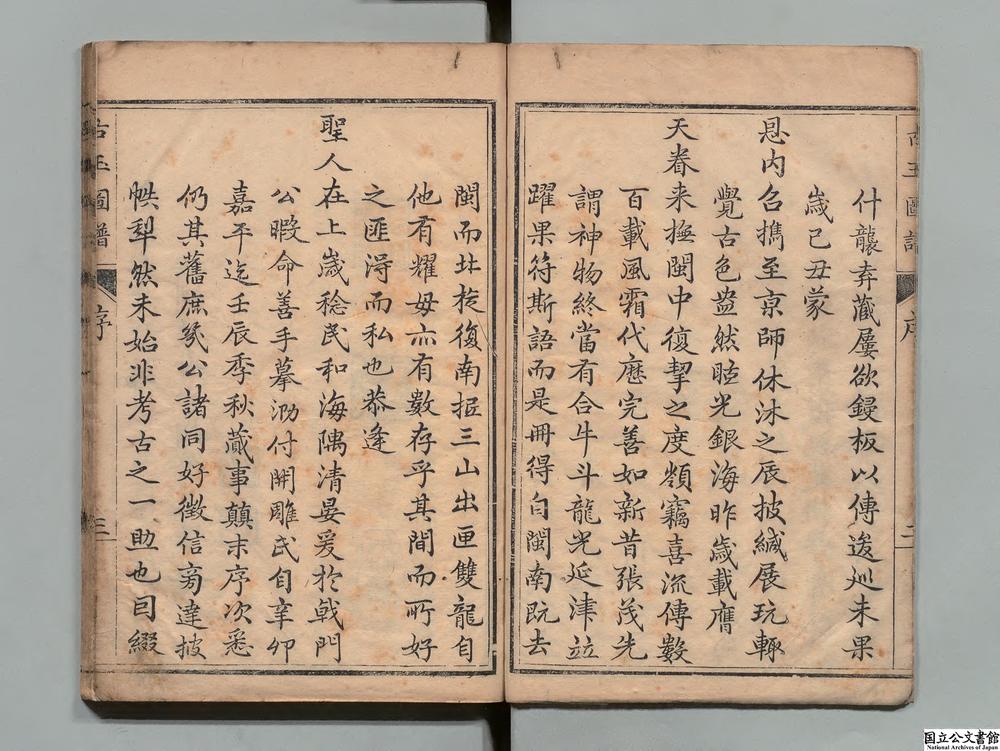 什襲弆藏屢欲鋟板以傳逡廵未果
歲己丑蒙
恩内召攜至京師休沐之辰披緘展玩輒
覺古色盎然眩光銀海昨歲載膺
天眷来撫閩中復挈之度嶺竊喜流傳數
百載風霜代歴完善如新昔張茂先
謂神物終當有合牛斗龍光延津竝
躍果符斯語而是冊得自閩南既去
閩而北旋復南振三山出匣雙龍自
他有耀毋亦有數存乎其間而所好
之匪淂而私也恭逢
聖人在上歲稔民和海隅清晏爰於戟門
公暇命善手摹泐付開雕氏自辛卯
嘉平迄壬辰季秋蕆事顛末序次悉
仍其舊庶幾公諸同好徵信易達披
帙犁然未始非考古之一助也因綴
古玉圖譜 序 二
古玉圖譜 序 三
国立公文書館
National Archives of Japan